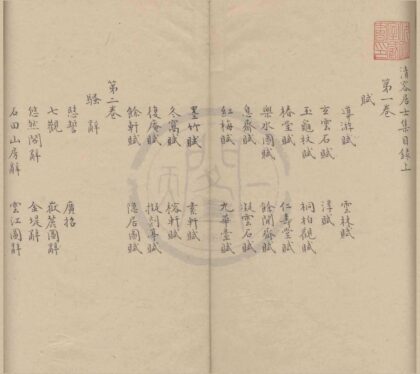 清容居士集目錄上
第一卷
賦
導游賦 雲林賦
玄雲石賦 淳賦
玉龜杖賦 桐柏觀賦
椿堂賦 仁壽堂賦
樂水園賦 餘閒齋賦
息齋賦 擬雲石賦
紅梅賦 九華臺賦
墨竹賦 素軒賦
久寓賦 榕軒賦
復庵賦 擬剡溪賦
餘軒賦 隱居圖賦
第二卷
騷辭
愍誓 廣招
七觀 嶽麓圖辭
悠然閣辭 金堤辭
石田山房辭 雲江圖辭